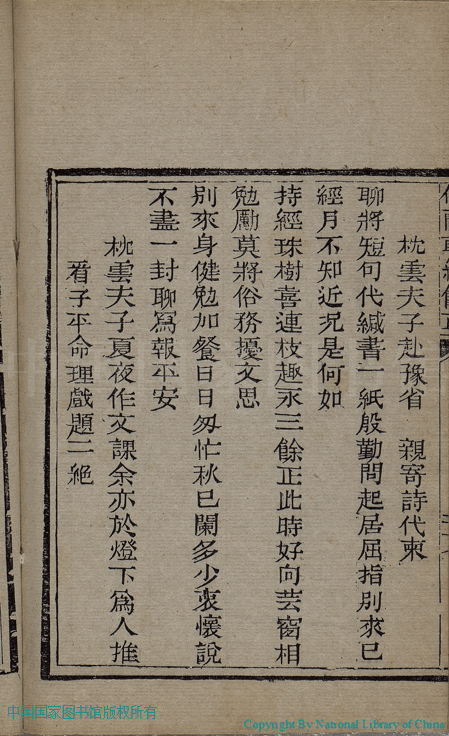 枕雲夫子赴豫省　親寄詩代柬
聊將短句代緘書一紙殷勤問起居屈指別來已
經月不知近況是何如
持經珠樹喜連枝趣永三餘正此時好向芸窗相
勉勵莫將俗務擾文思
別來身健勉加餐日日匆忙秋已闌多少衷懷說
不盡一封聊寫報平安
枕雲夫子夏夜作文課余亦於燈下爲人推
看子平命理戲題二絕
中国国家图书馆版权所有
Copyright By National Library of China